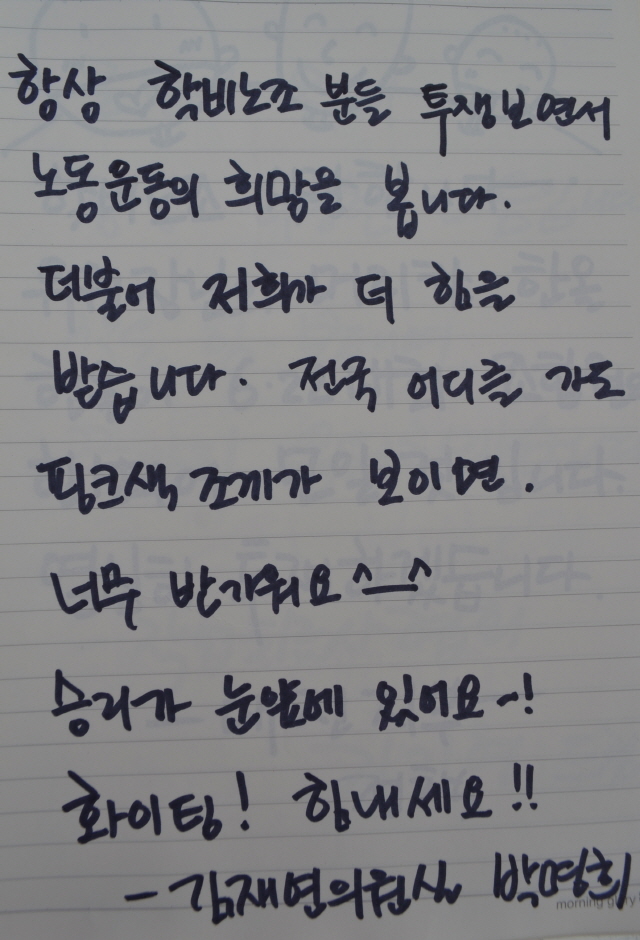 항상 학비노조 분들 투쟁보면서
노동운동의 희망을 봅니다.
더불어 저희가 더 힘을
받습니다. 전국 어디를 가도
핑크색 조끼가 보이면.
너무 반가워요^_^
승리가 눈앞에 있어요~!
화이팅! 힘내세요!!
- 김재연의원실 박명희
morning glory